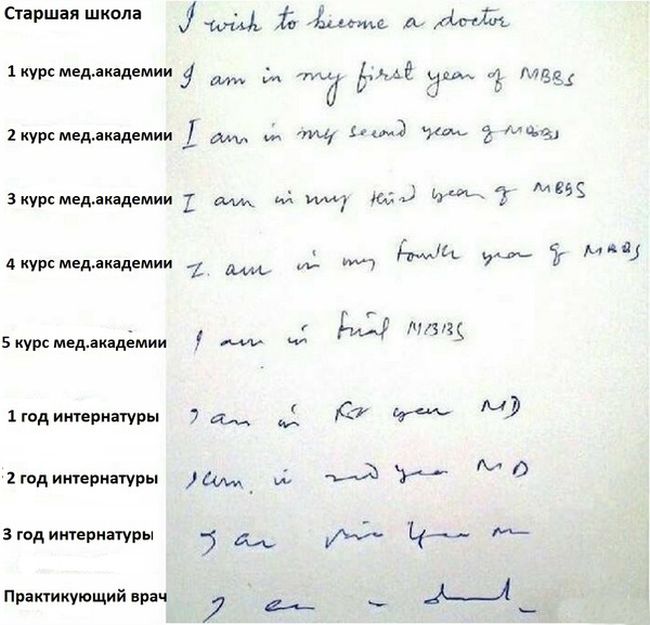 Старшая школа I wish to become a doctor
1 курс мед.академии I am in my first year of MBBS
2 курс мед.академии I am in my second year of MBBS
3 курс мед.академии I am in my third year of MBBS
4 курс мед.академии I am in my fourth year of MBBS
5 курс мед.академии I am in final MBBS
1 год интернатуры I am in year MD
2 год интернатуры I am in 2nd year MD
3 год интернатуры I am year
Практикующий врач I am